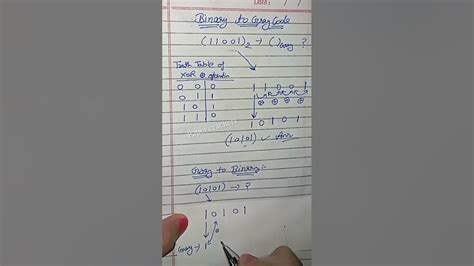 Date:
Binary to Gray Code
(11001)₂ → ( )Gray ?
Truth Table of
XOR ⊕ operation
0 0 0
0 1 1
1 0 1
1 1 0
1 1 0 0 1
⊕ ⊕ ⊕ ⊕
1 0 1 0 1
(10101) ✓ Ans
Gray to Binary:-
(10101) → ?
1 0 1 0 1
⊕
→ 1